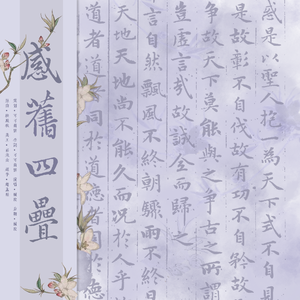 惑是以聖人抱一為天下式不自見
是故彰不自伐故有功不自矜故
爭故天下莫能與之爭古之所謂
豈虛言哉故誠全而歸之
言自然飄風不終朝驟雨不終日
天地天地尚不能久而況於人乎
道者道者同於道德者同於
感舊四疊